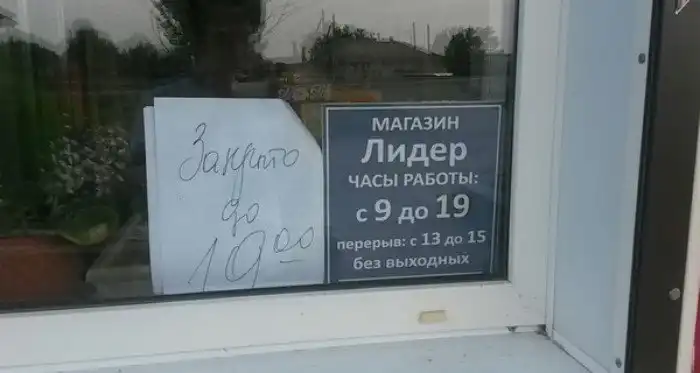 Закрыто
до
19 00
МАГАЗИН
Лидер
ЧАСЫ РАБОТЫ:
с 9 до 19
перерыв: с 13 до 15
без выходных